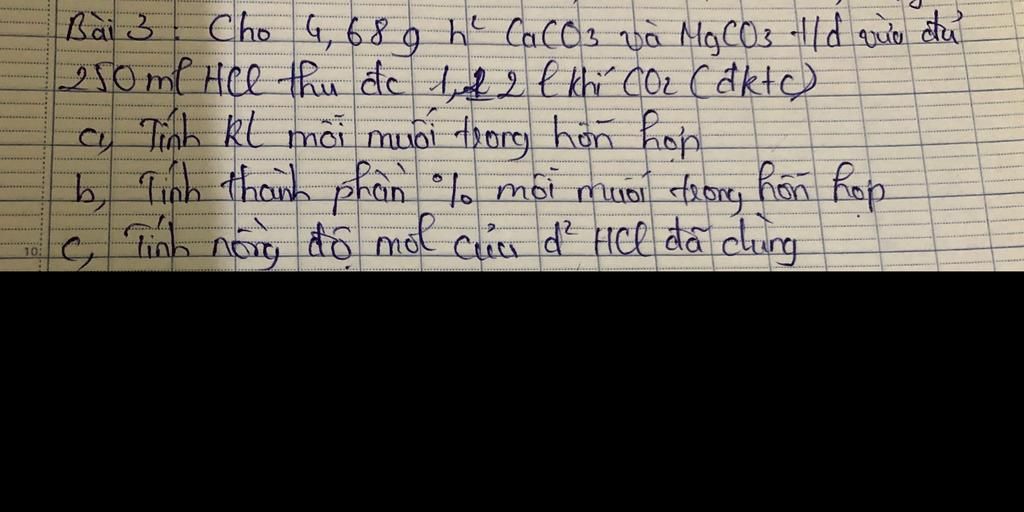 Bài 3 : Cho 4,68 g h² CaCO3 và MgCO3 t/d vừa đủ
250ml HCl thu đc 1,12 l khí CO2 (đktc)
a, Tính kl mỗi muối trong hỗn hợp
b, Tính thành phần % mỗi muối trong hỗn hợp
c, Tính nồng độ mol của d² HCl đã dùng
10